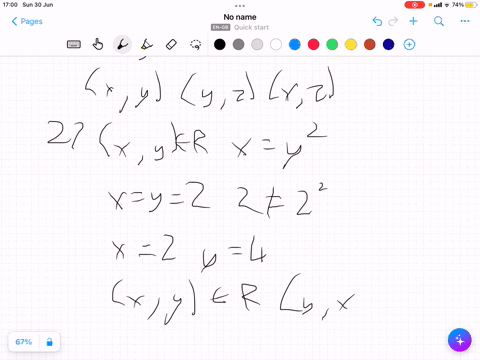 17:00 Sun 30 Jun
74%
Pages
No name
EN-GB Quick start
(x, y) (y, z) (x, z)
2) (x, y) ∈ R x = y²
x = y = 2 2 ≠ 2²
x = 2 y = 4
(x, y) ∈ R (y, x
67%